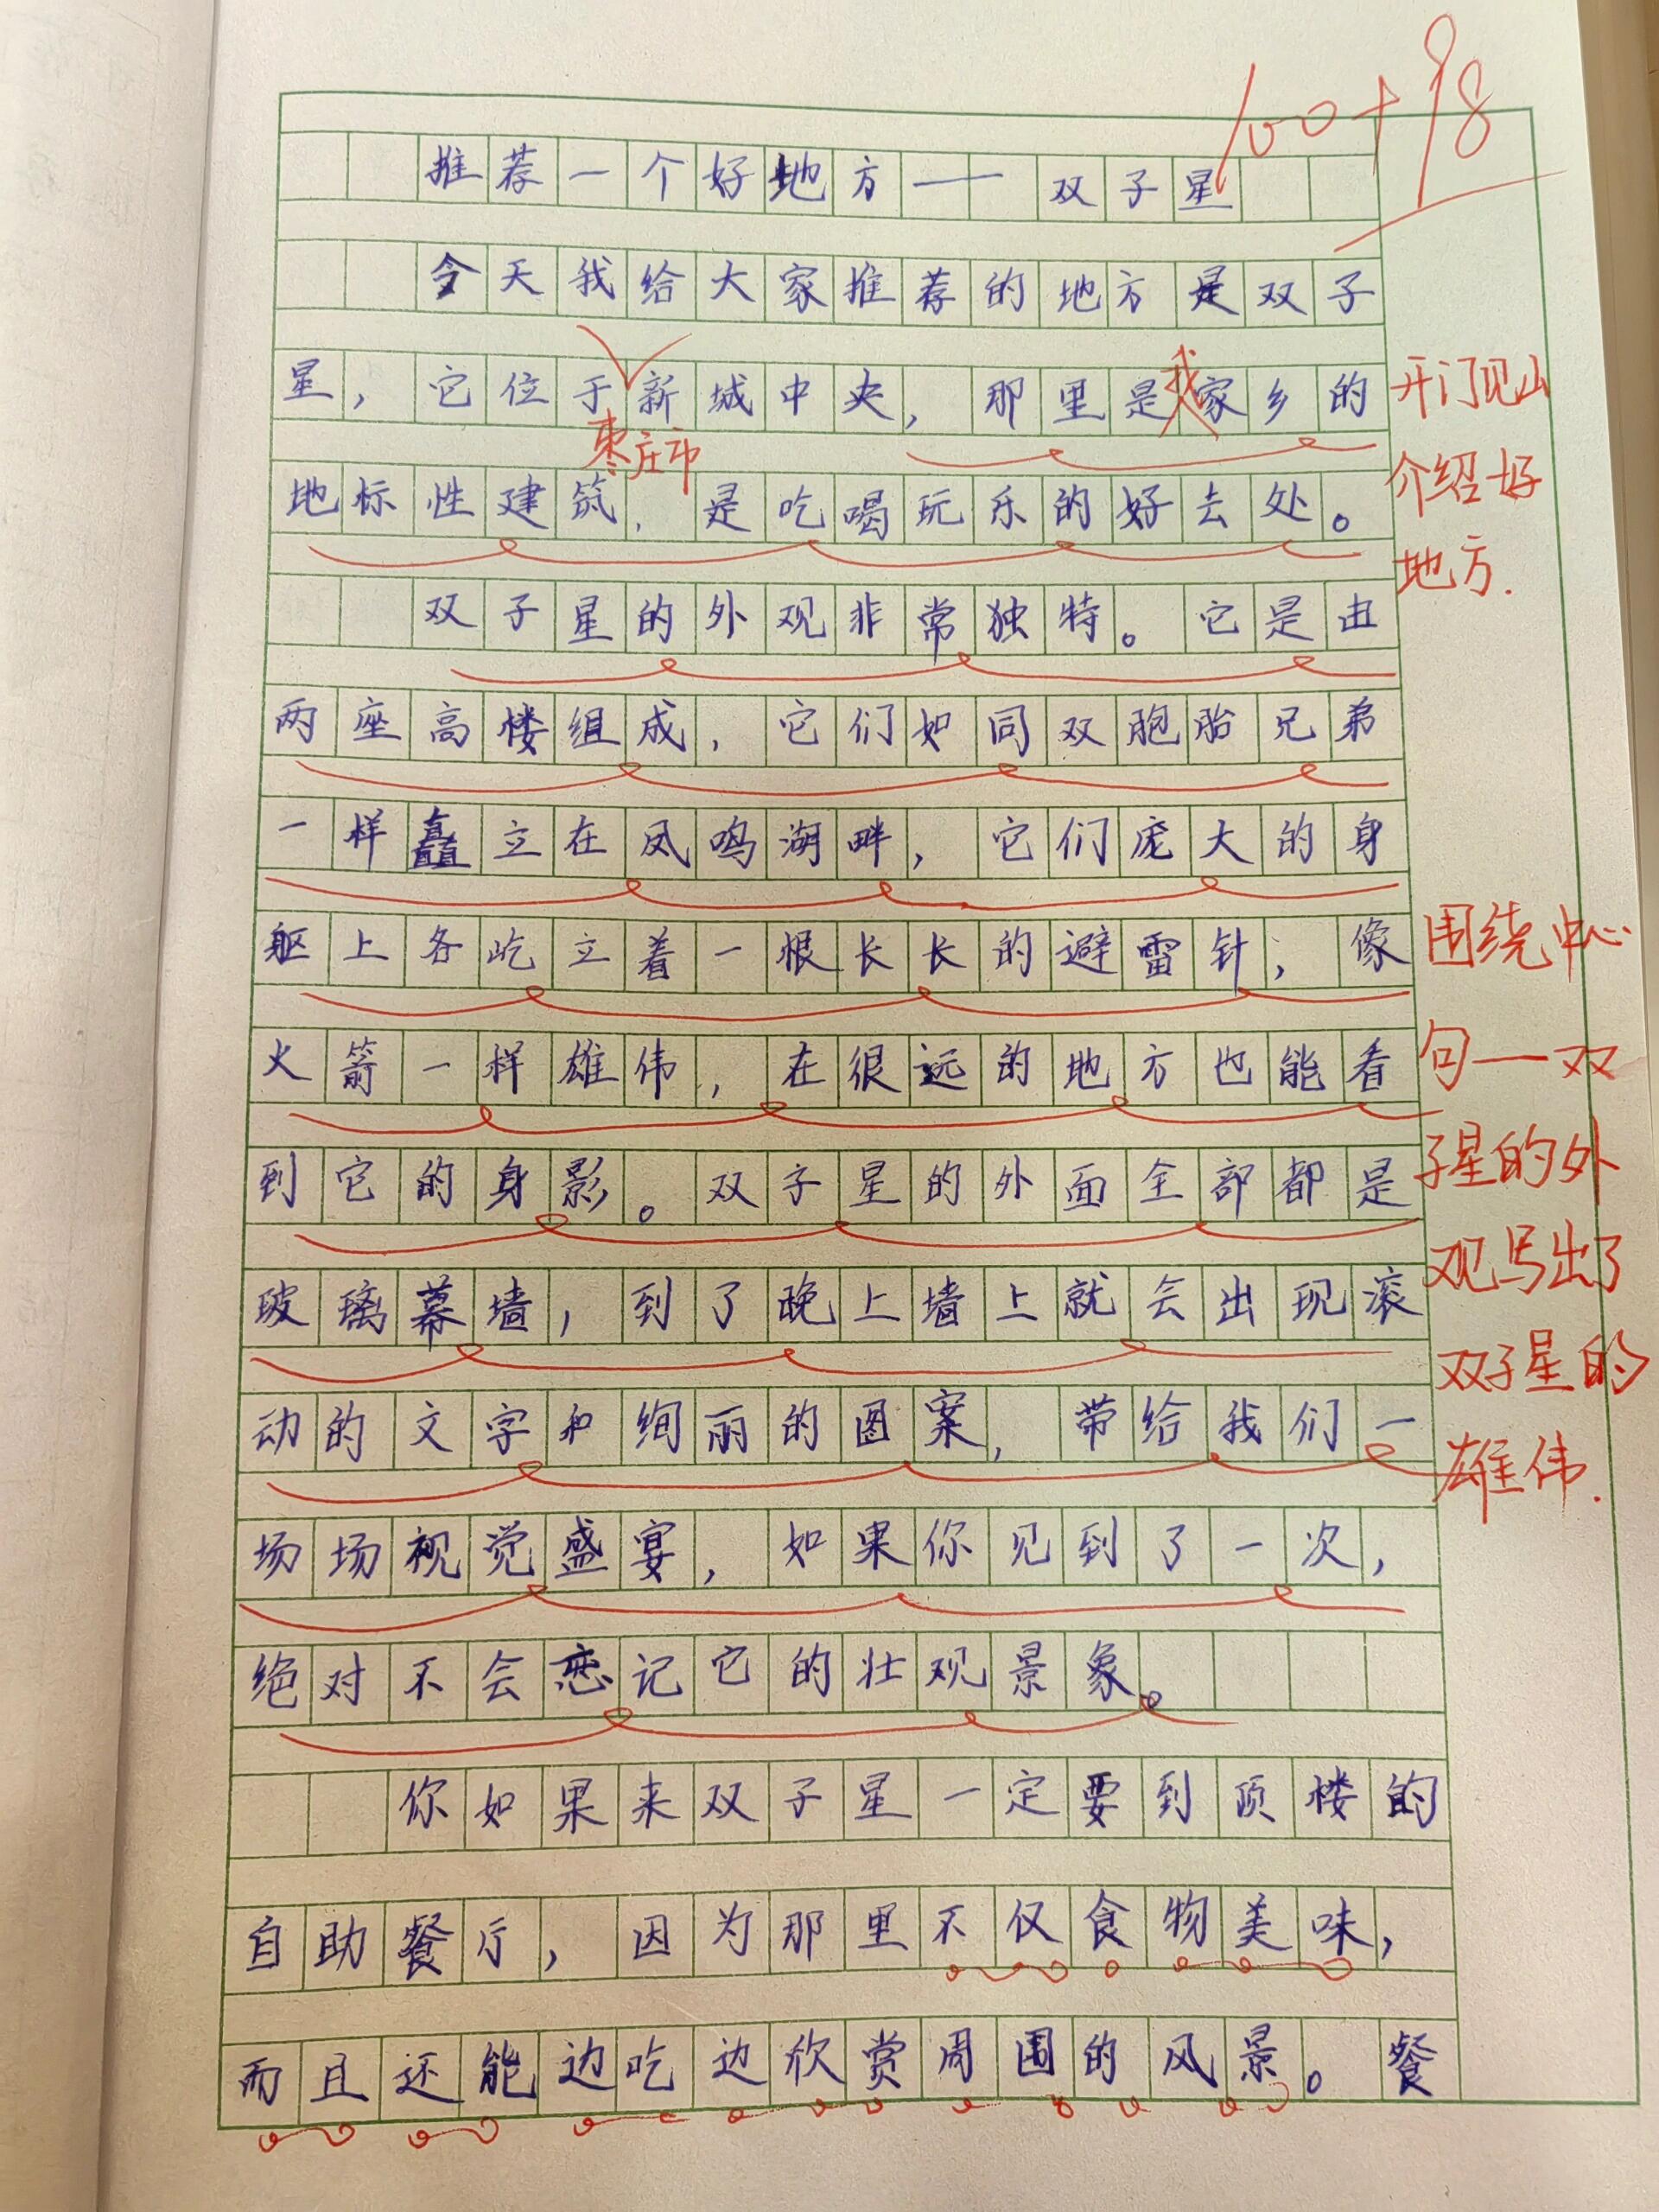 100+98
推荐一个好地方——双子星
今天我给大家推荐的地方是双子
星，它位于新城中央，那里是我家乡的
枣庄市
地标性建筑，是吃喝玩乐的好去处。
开门见山
介绍好
地方.
双子星的外观非常独特。它是由
两座高楼组成，它们如同双胞胎兄弟
一样矗立在凤鸣湖畔，它们庞大的身
躯上各屹立着一根长长的避雷针，像
火箭一样雄伟，在很远的地方也能看
到它的身影。双子星的外面全部都是
玻璃幕墙，到了晚上墙上就会出现滚
动的文字和绚丽的图案，带给我们一
场场视觉盛宴，如果你见到了一次，
绝对不会忘记它的壮观景象。
围绕中心
句一双
子星的外
观写出了
双子星的
雄伟.
你如果来双子星一定要到顶楼的
自助餐厅，因为那里不仅食物美味，
而且还能边吃边欣赏周围的风景。餐